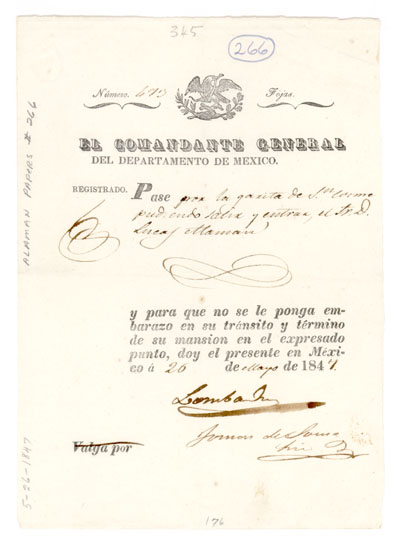 345
266
Número. 673 Fojas.
EL COMANDANTE GENERAL
DEL DEPARTAMENTO DE MEXICO.
REGISTRADO. Pase por la garita de Sn. Cosme
pudiendo salir y entrar, el Sr. D.
Lucas Alaman
y para que no se le ponga em-
barazo en su tránsito y término
de su mansion en el expresado
punto, doy el presente en Méxi-
co á 26 de Mayo de 1847.
Lombardini
Valga por
ALAMAN PAPERS # 266
5-26-1847
176